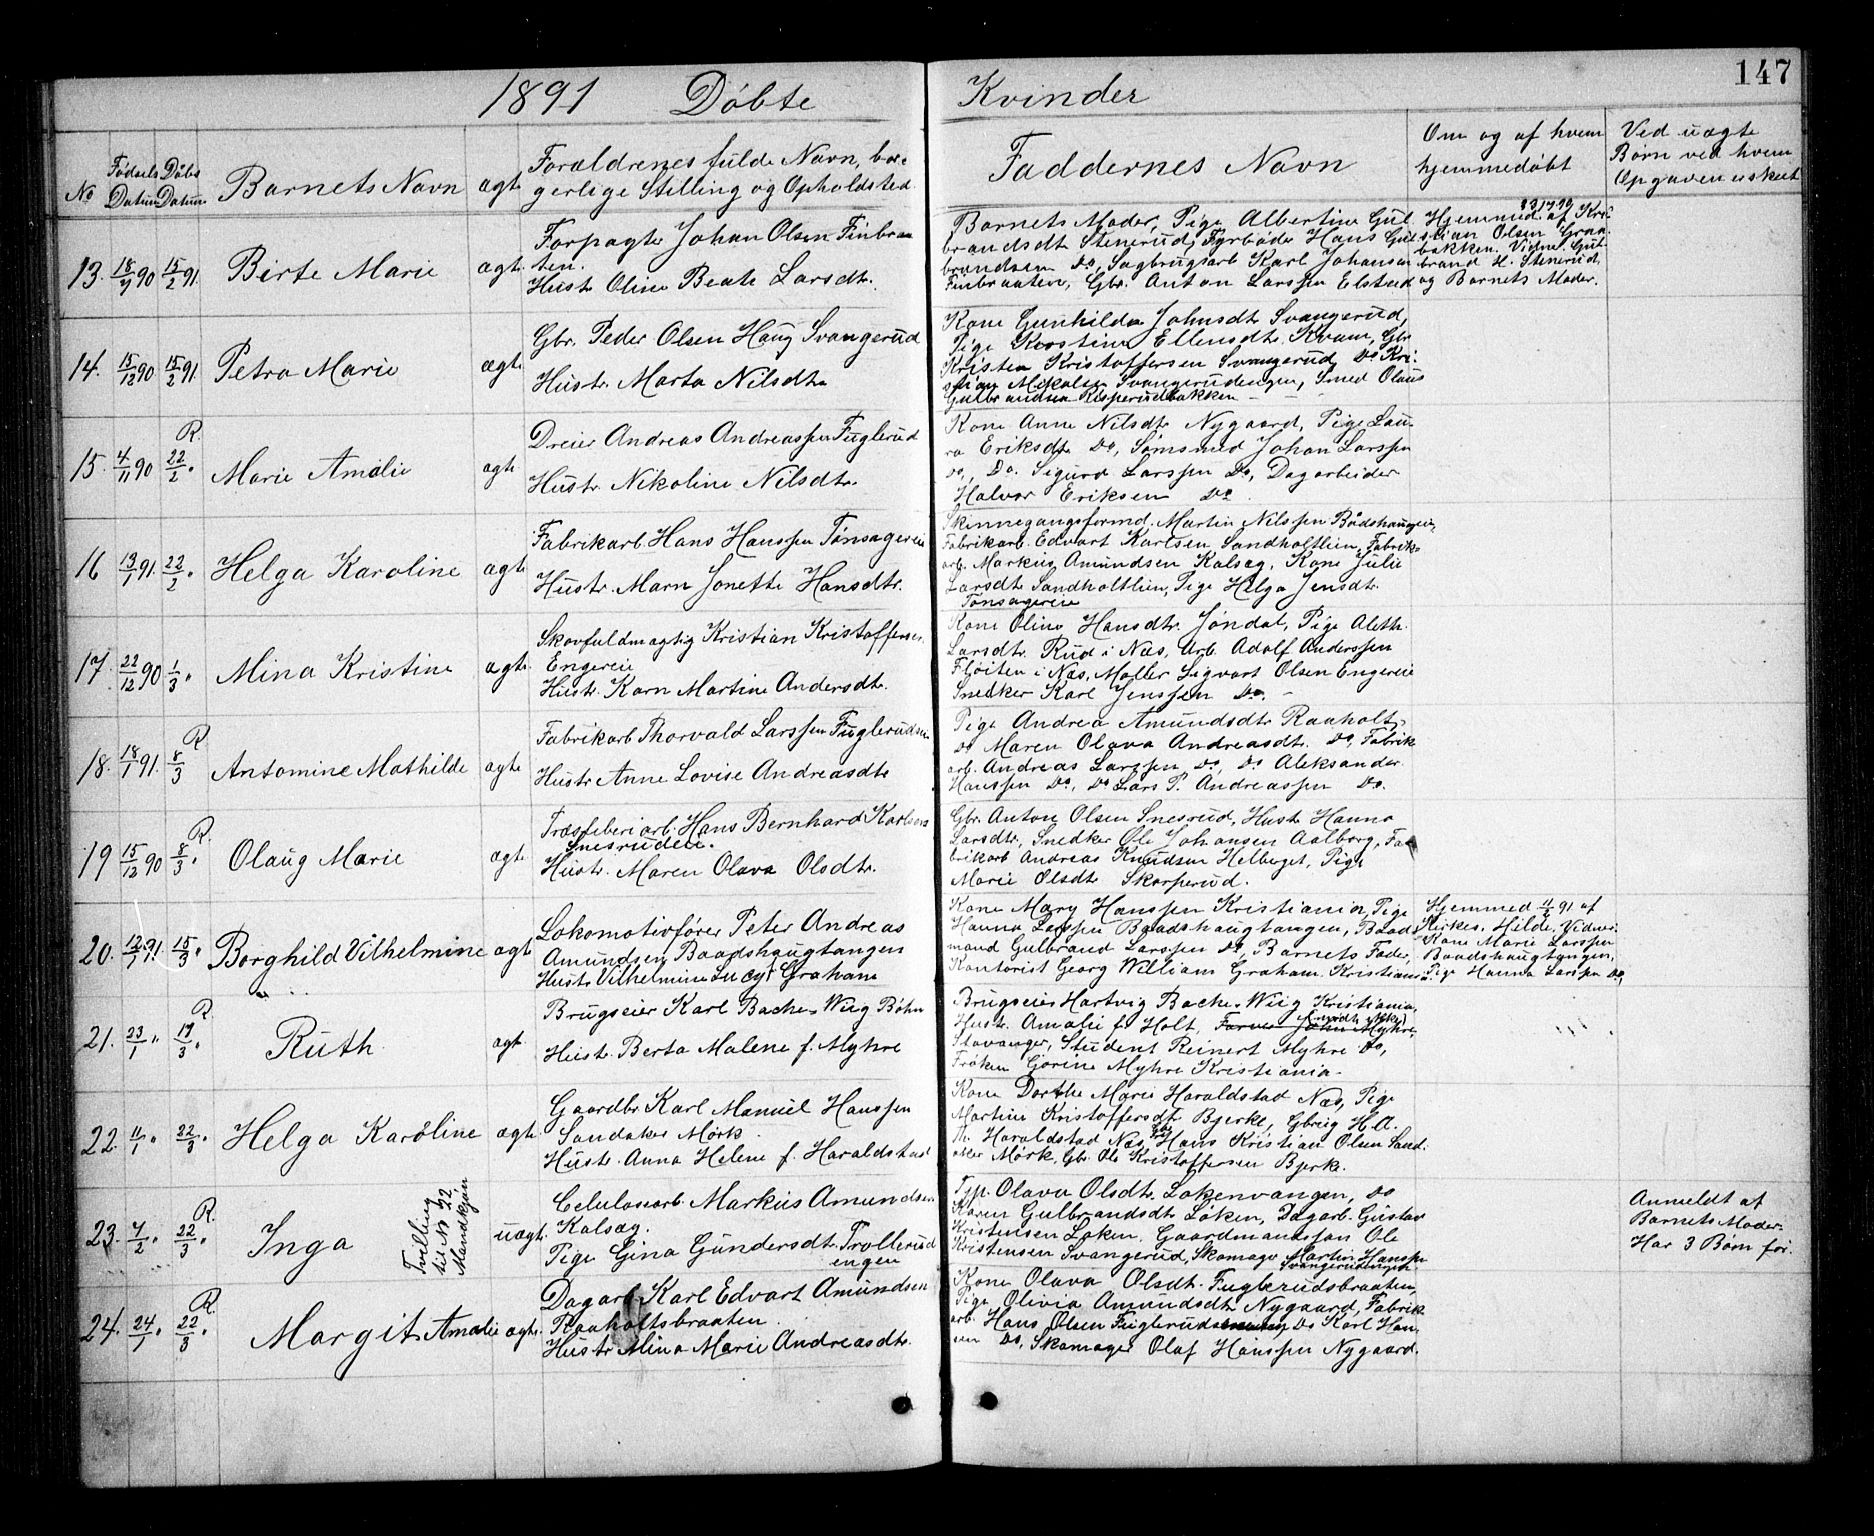 147
1891 Döbte Kvinder
No
Födsels Datum
Döbs Datum
Barnets Navn
ægte
Forældrenes fulde Navn, bor-
gerlige Stilling og Opholdsted
Faddernes Navn
Om og af hvem
hjemmedöbt
Ved uægte
Börn ved hvem
Opgaven er skeet
13. 18/7 90 15/2 91. Birte Marie ægte.
Forpagter Johan Olsen Finbraa
ten.
Hustr. Oline Beate Larsdtr.
Barnets Moder, Pige Albertine Gul
brandsdtr Stenerud, Fyrböder Hans Gul
brandsen Do, Sagbrugsarb Karl Johansen
Finbraaten, Gbr. Anton Larssen Elstad
Hjemmed. af Kri-
stian Olsen Graa-
bakken. Vidne. Gul-
brand H. Stenerud
og Barnets Moder.
14. 15/12 90 15/2 91. Petra Marie ægte
Gbr. Peder Olsen Haug Svangerud
Hustr. Marta Nilsdtr
Kone Gunhilda Johnsdtr Svangerud,
Pige Kirstine Ellensdtr. Kvam, Gbr
Kristen Kristoffersen Svangerud, Do Kri-
stian Mikalsen Svangerudengen, Smed Olaus
Gulbrandsen Risperudbakken
15. 4/11 90 R. 22/2 " Marie Amalie ægte
Dreier Andreas Andreassen Fuglerud
Hustr. Nikoline Nilsdtr.
Kone Anne Nilsdtr Nygaard, Pige Lau-
ra Eriksdtr Do, Sömsmed Johan Larssen
Do, Do. Sigurd Larssen Do, Dagarbeider
Halvor Eriksen Do.
16 13/1 91. 22/2 " Helga Karoline ægte
Fabrikarb. Hans Hanssen Tönsagereie
Hustr. Marn Jonette Hansdtr.
Skinnegangsformd. Martin Nilssen Bådshaugeie,
Fabrikarb. Edvart Karlsen Sandholtlien, Fabrik-
arb. Markus Amundsen Kalsæg, Kone Julie
Larsdtr Sandholtlien, Pige Helga Jensdtr.
Tönsagereie
17. 22/12 90 1/3 " Mina Kristine ægte.
Skovfuldmægtig Kristian Kristoffersen
Engereie
Hustr. Karn Martine Andersdtr.
Kone Oline Hansdtr. Jöndal, Pige Aleth.
Larsdtr. Rud i Næs, Arb. Adolf Anderssen
Flöiten i Næs, Möller Sigvart Olsen Engereie
Snedker Karl Jenssen Do.
18. 18/1 91. R 8/3 Antomine Mathilde ægte
Fabrikarb Thorvald Larssen Fuglerudsen
Hustr Anne Lovise Andreasdtr
Pige Andrea Amundsdtr Raaholt,
Do Maren Olava Andreasdtr. Do, Fabrik
arb. Andreas Larssen Do, Do Aleksander
Hanssen Do, Do Lars P. Andreassen Do.
19 15/12 90 R. 8/3 " Olaug Marie ægte
Træsliberiarb. Hans Bernhard Karlsen
Snesrudeie.
Hustr. Maren Olava Olsdtr.
Gbr. Anton Olsen Snesrud, Hustr Hanna
Larsdtr, Snedker Ole Johansen Aalborg, Fa-
brikarb Andreas Knudsen Helberget, Pige
Marie Olsdtr Skarperud.
20. 12/1 91. 15/3 " Borghild Vilhelmine ægte
Lokomotivförer Peter Andreas
Amundsen Baadshaugtangen
Hustr Vilhelmine Lucy Graham
Kone Mary Hanssen Kristiania, Pige
Hanna Larssen Baadshaugtangen, Baads-
mand Gulbrand Larssen Do, Barnets Fader,
Kontorist Georg William Graham. Kristiania
Hjemmed 91 af
Kirkes. Hilde, Vidner
Kone Marie Larssen
Baadshaugtangen,
Pige Hanna Larssen Do,
21. 23/1 " R. 19/3 " Ruth. ægt
Brugseier Karl Bache-Wiig Böhn
Hustr. Berta Malene f. Myhre
Brugseier Hartvig Bache-Wiig Kristiania,
Hustr. Amalie f. Holt, John Myhre,
Stavanger, Student Reinert Myhre Do,
Fröken Gorine Myhre Kristiania.
22. 11/1 " 22/3 " Helga Karoline ægte
Gaardbr Karl Manuel Hanssen
Sandaker Mörk.
Hustr. Anna Helene f. Haraldstad
Kone Dorthe Marie Haraldstad Næs, Pige
Martine Kristoffersdtr Bjerke, Gbreig H. A.
Haraldstad Næs, Gbr Hans Kristian Olsen Sand-
aker Mörk, Gbr. Ole Kristoffersen Bjerke.
23. 7/2 " R. 22/3 " Inga
Tvilling
til No 22,
Mandkjön
uægte
Celulosearb. Markus Amundsen
Kalsæg.
Pige Gina Gundersdtr. Trollerud
engen
Olava Olsdtr. Lökenvangen, Do
Karen Gulbrandsdtr Löken, Dagarb. Gustav
Kristensen Löken, Gaardmandssön Ole
Kristensen Svangerud, Skomager Martin Hanssen
Svangerudengen
Anmeldt af
Barnets Moder.
Har 3 Börn för.
24. 24/1 " R. 22/3 " Margit Amalie ægte.
Dagarb. Karl Edvart Amundsen
Raaholtsbraaten.
Hustr Mina Marie Andreasdtr.
Kone Olava Olsdtr. Fuglerudsbraaten,
Pige Olivia Amundsdtr Nygaard, Fabrik
arb. Hans Olsen Fuglerud Do Karl Han-
sen Do, Skomager Olaf Hanssen Nygaard.